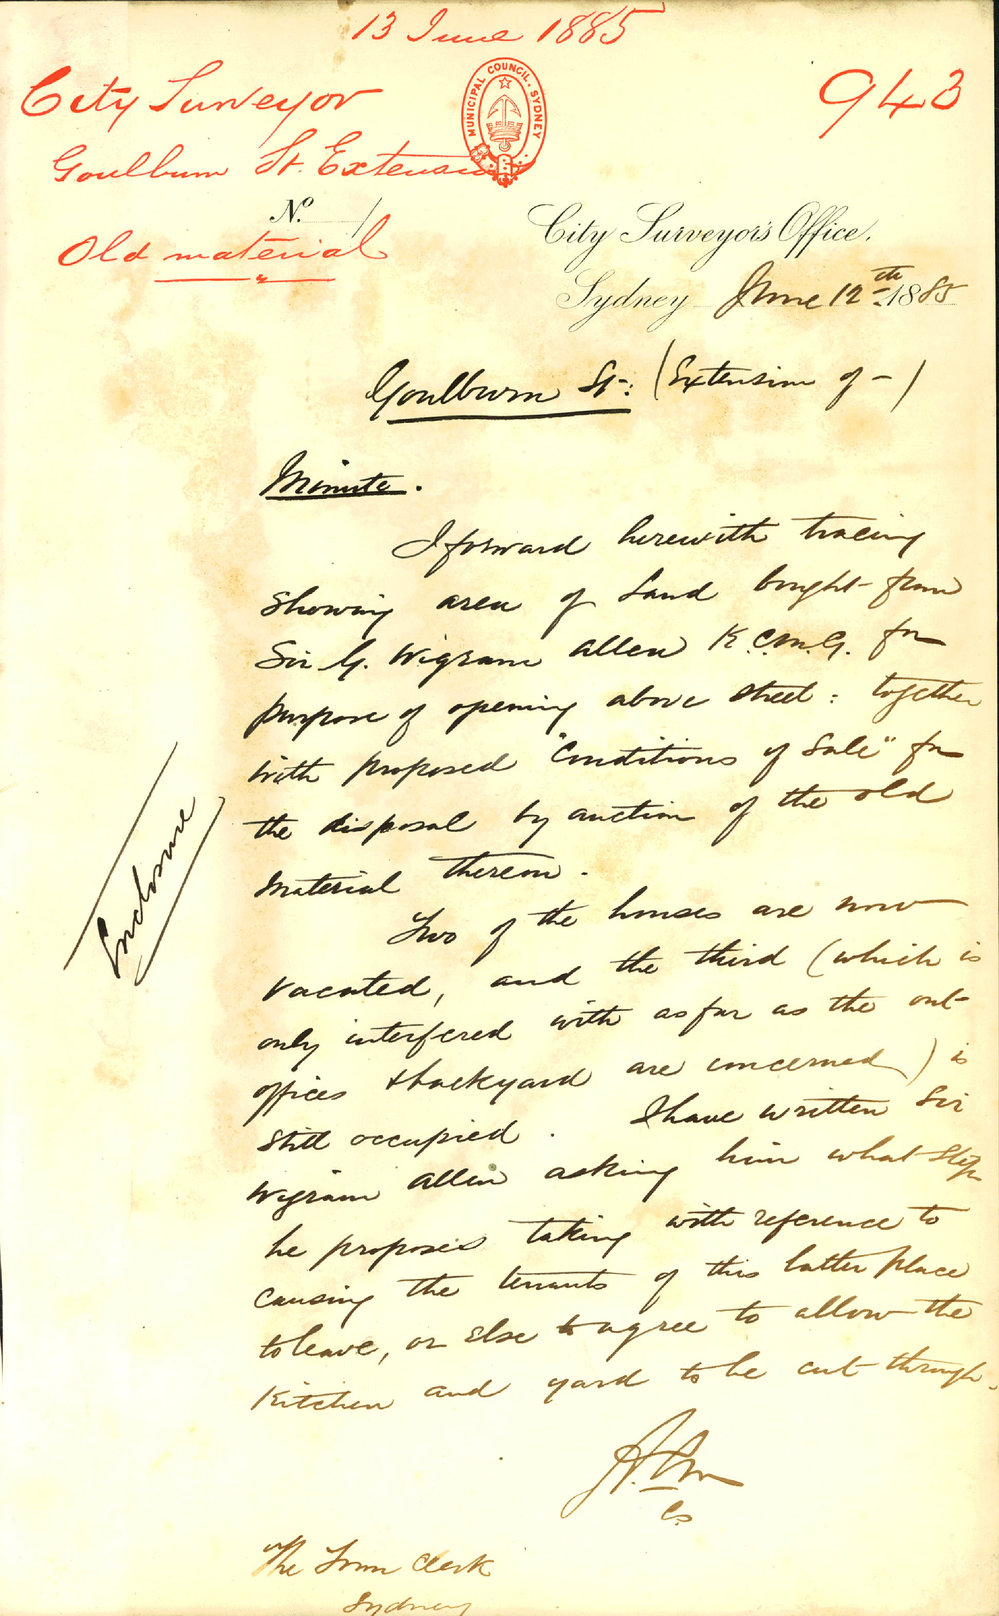 13 June 1885
City Surveyor
943
MUNICIPAL COUNCIL. SYDNEY
Goulburn St. Extension
No.
Old material
City Surveyor's Office.
Sydney June 12th 1885
Goulburn St: (Extension of -)
Minute.
I forward herewith tracing
showing area of Land bought from
Sir G. Wigram Allen K.C.M.G. for
purpose of opening above street: together
with proposed "Conditions of Sale" for
the disposal by auction of the old
material thereon.
Enclosure
Two of the houses are now
vacated, and the third (which is
only interfered with as far as the out-
offices & backyard are concerned) is
still occupied. I have written Sir
Wigram Allen asking him what steps
he proposes taking with reference to
causing the tenants of this latter place
to leave, or else to agree to allow the
Kitchen and yard to be cut through.
CS
The Town Clerk
Sydney